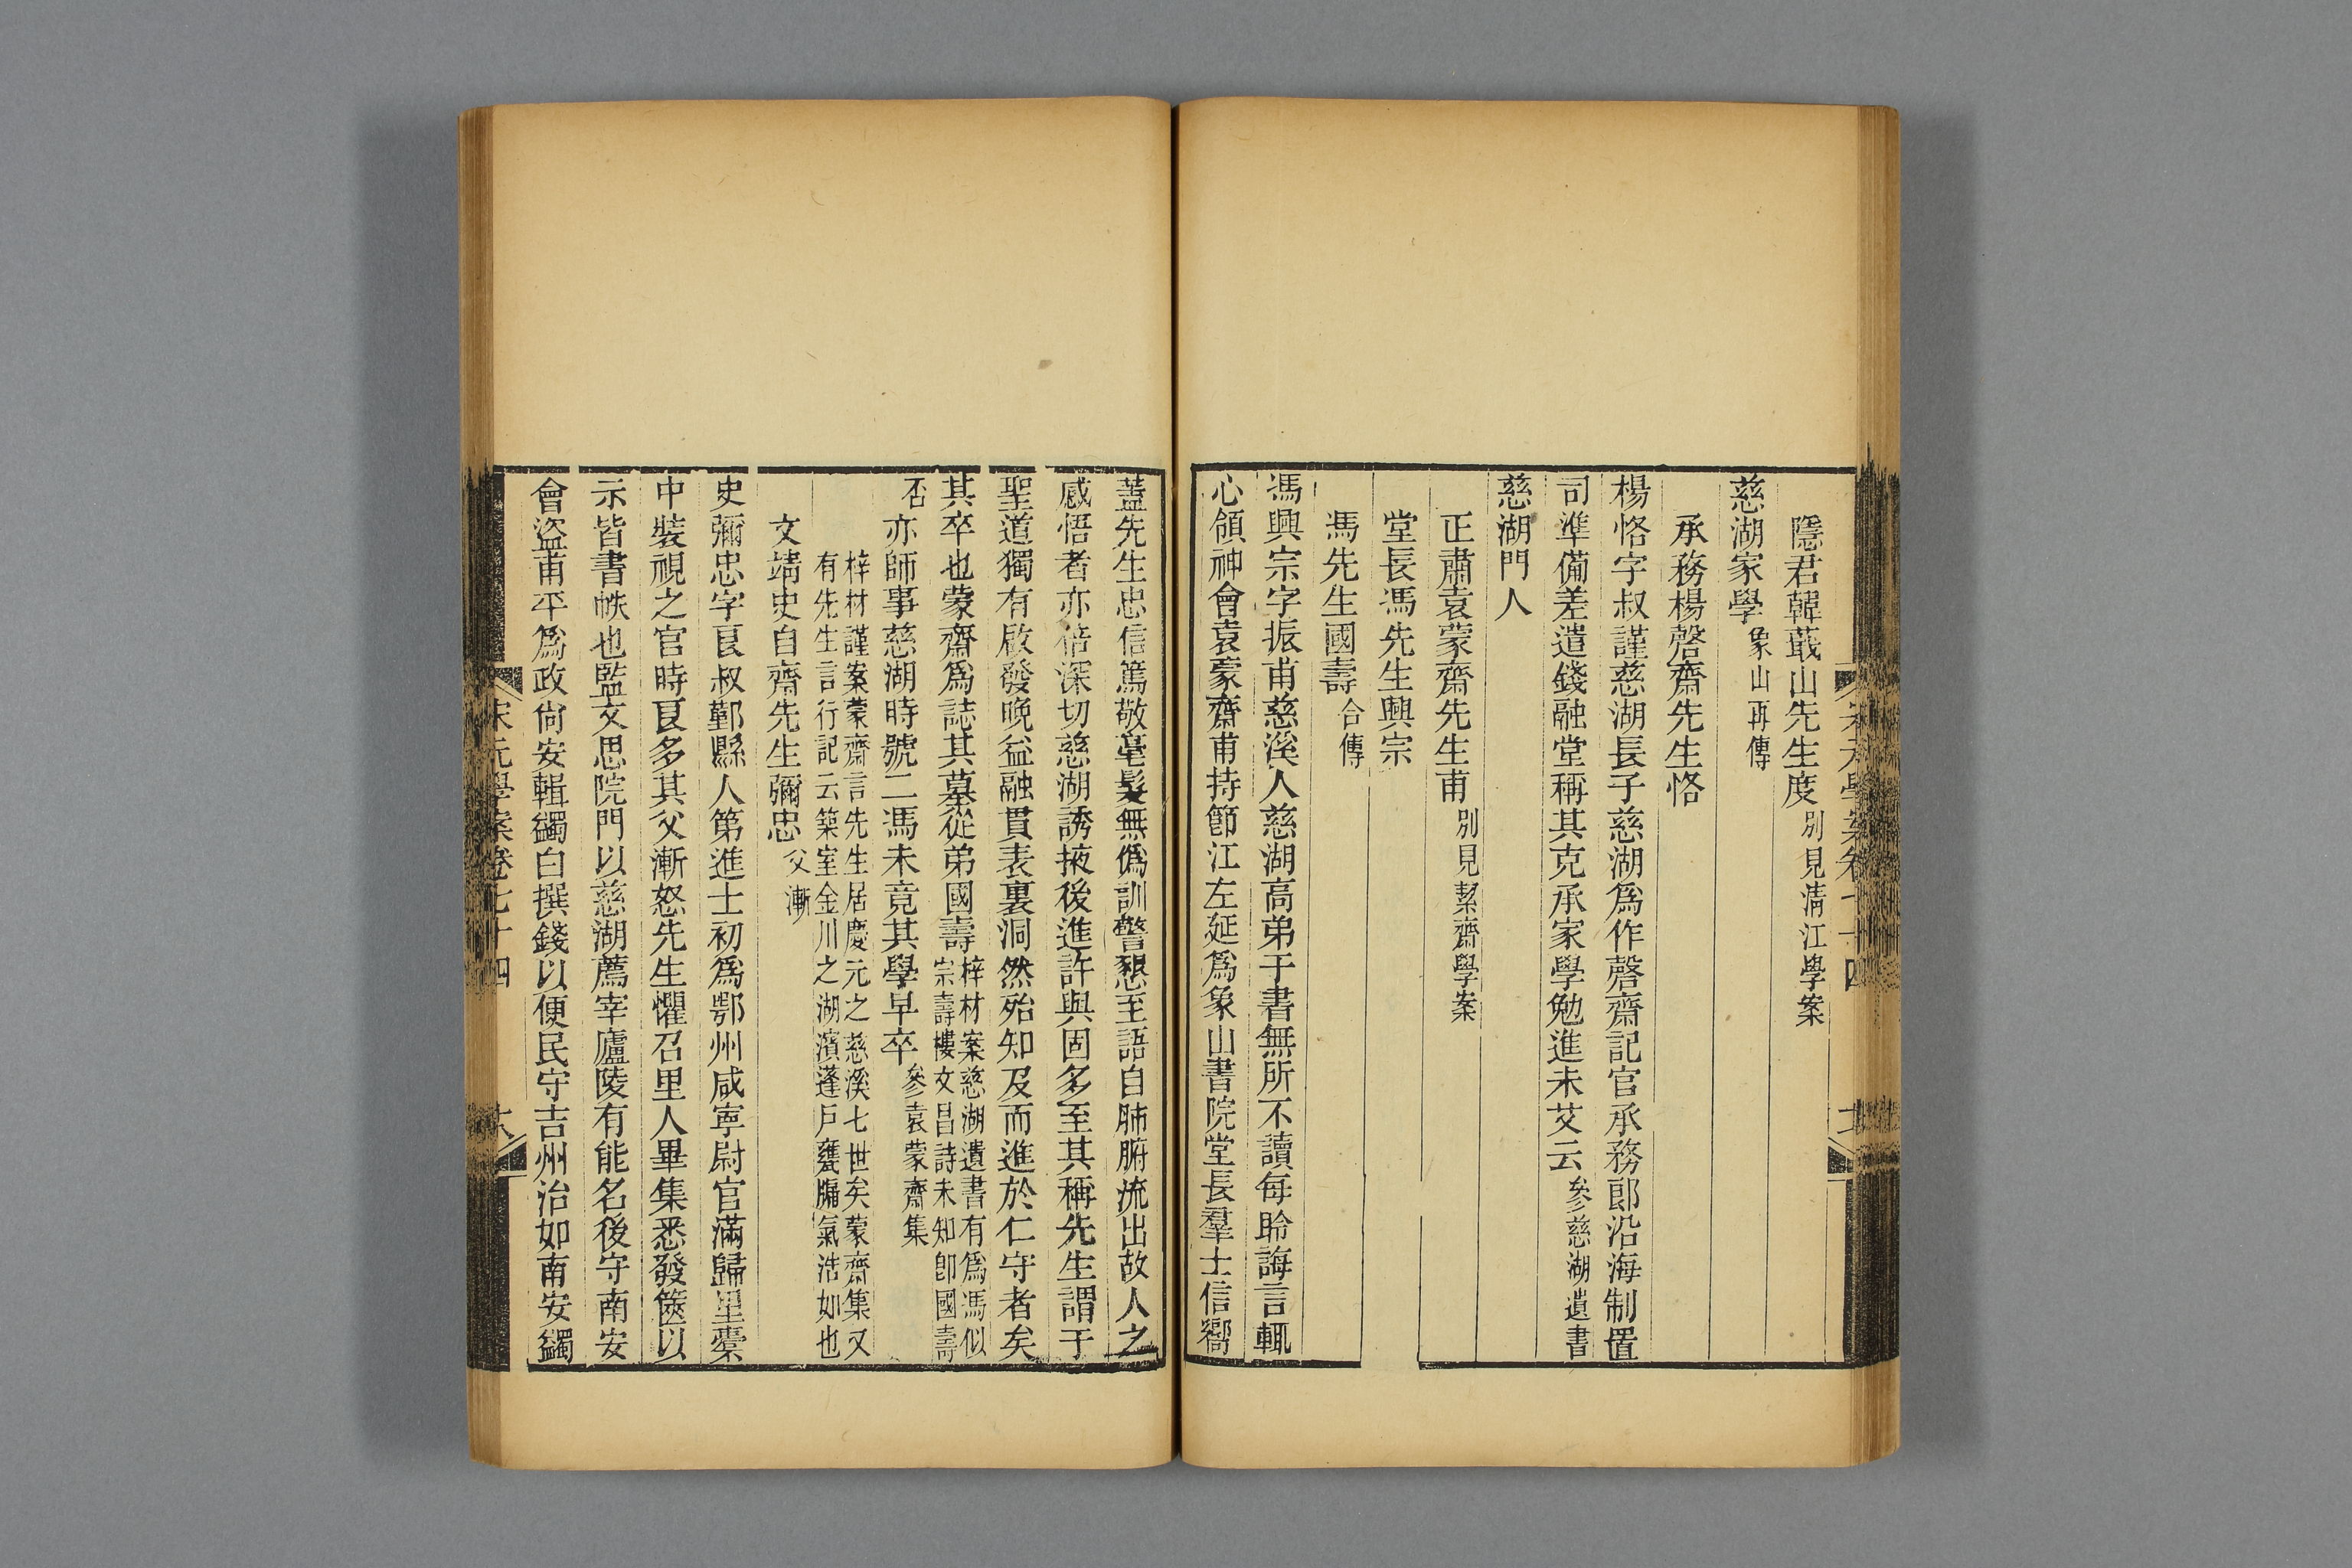 隱君韓蕺山先生度別見淸江學案
慈湖家學象山再傳
承務楊磬齋先生恪
楊恪字叔謹慈湖長子慈湖爲作磬齋記官承務郎沿海制置
司準備差遣錢融堂稱其克承家學勉進未艾云參慈湖遺書
慈湖門人
正肅袁蒙齋先生甫別見絜齋學案
堂長馮先生興宗
馮先生國壽合傳
馮興宗字振甫慈溪人慈湖高弟于書無所不讀每聆誨言輒
心領神會袁蒙齋甫持節江左延爲象山書院堂長羣士信嚮
蓋先生忠信篤敬毫髮無僞訓警懇至語自肺腑流出故人之
感悟者亦倍深切慈湖誘掖後進許與固多至其稱先生謂于
聖道獨有啟發晚益融貫表裏洞然殆知及而進於仁守者矣
其卒也蒙齋爲誌其墓從弟國壽梓材案慈湖遺書有爲馮似
宗壽樓文昌詩未知卽國壽
否亦師事慈湖時號二馮未竟其學早卒參袁蒙齋集
梓材謹案蒙齋言先生居慶元之慈溪七世矣蒙齋集又
有先生言行記云築室金川之湖濱蓬戶甕牖氣浩如也
文靖史自齋先生彌忠父漸
史彌忠字良叔鄞縣人第進士初爲鄂州咸寧尉官滿歸里橐
中裝視之官時良多其父漸怒先生懼召里人畢集悉發篋以
示皆書帙也監文思院門以慈湖薦宰廬陵有能名後守南安
會盜甫平爲政尙安輯蠲白撰錢以便民守吉州治如南安蠲
宋元學案卷七十四
六